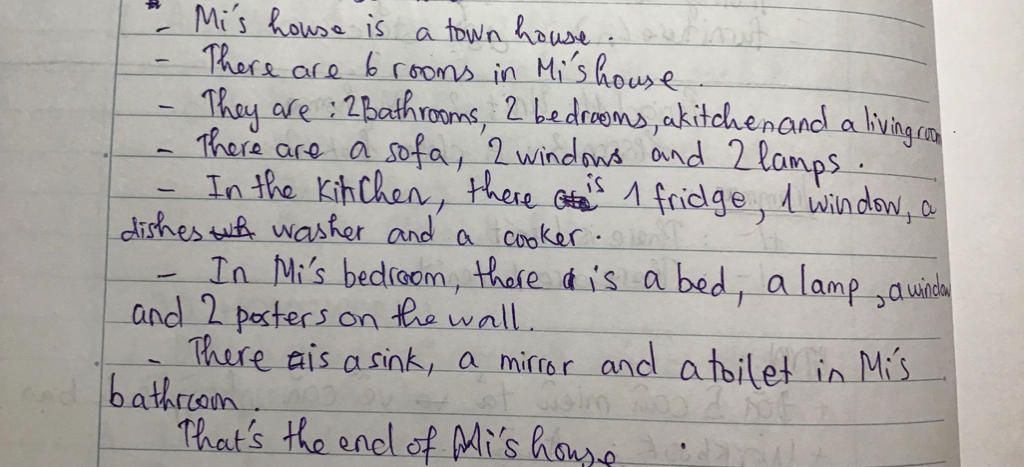 - Mi's house is a town house.
- There are 6 rooms in Mi's house.
- They are : 2 Bathrooms, 2 bedrooms, a kitchen and a living room
- There are a sofa, 2 windows and 2 lamps.
- In the kitchen, there is 1 fridge, 1 window, a
dishes washer and a cooker.
- In Mi's bedroom, there is a bed, a lamp, a window
and 2 posters on the wall.
- There is a sink, a mirror and a toilet in Mi's
bathroom.
That's the end of Mi's house.